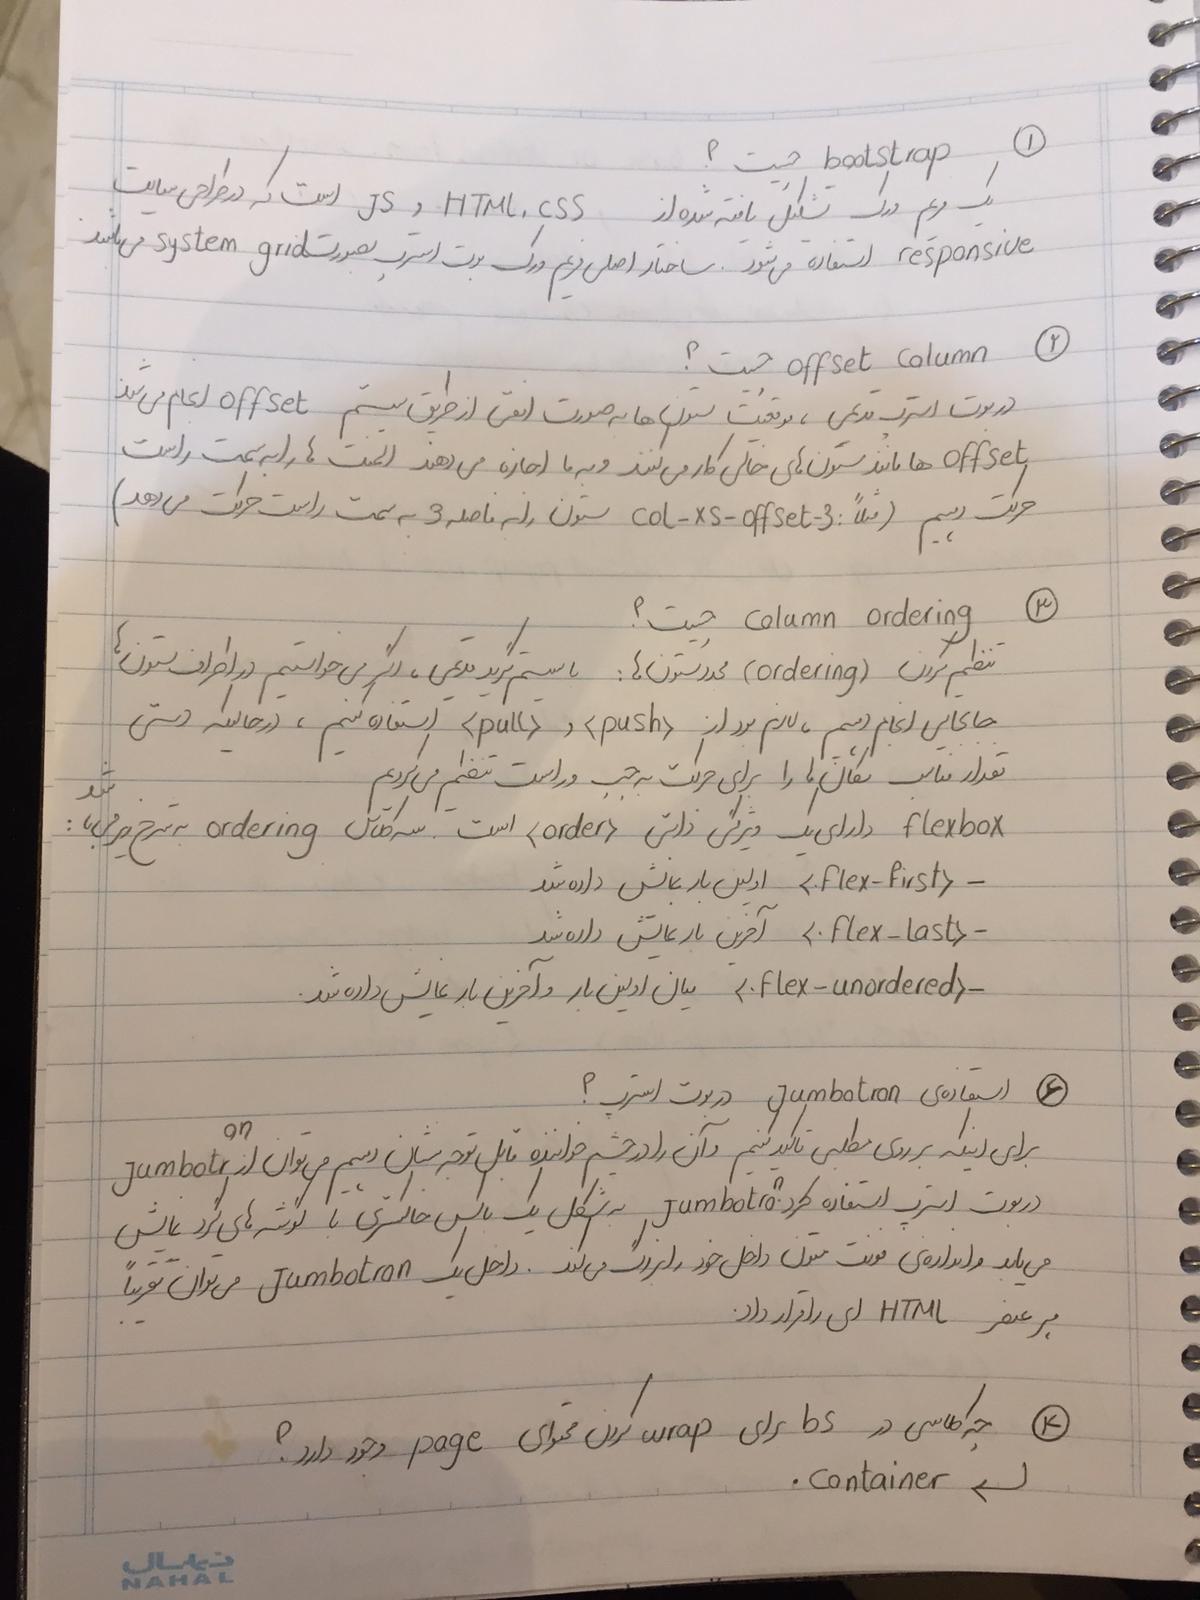 ① bootstrap چیست ؟
یک فریم ورک تشکیل یافته شده از HTML, CSS و JS است که در طراحی سایت
responsive استفاده می‌شود . ساختار اصلی فریم ورک بوت استرپ بصورت system grid می‌باشد
② offset column چیست ؟
در بوت استرپ قدیمی ، موقعیت ستون ها به صورت افقی از طریق سیستم offset انجام می‌شد
offset ها مانند ستون‌های خالی کار می‌کنند و به ما اجازه می‌دهند المنت ها را به سمت راست
حرکت دهیم (مثلاً : col-xs-offset-3 ستون را به فاصله 3 به سمت راست حرکت می‌دهد)
③ column ordering چیست ؟
تنظیم کردن (ordering) مجدد ستون‌ها : با سیستم گرید قدیمی ، اگر می‌خواستیم در اطراف ستون‌ها
جابجایی انجام دهیم ، لازم بود از <push> و <pull> استفاده کنیم ، درحالیکه دستی
تعداد مناسب مکان‌ها را برای حرکت به چپ و راست تنظیم می‌کردیم
flexbox دارای یک ویژگی ذاتی <order> است . سه کلاس ordering به شرح زیر می‌باشد :
- <.flex-first> اولین بار نمایش داده شد
- <.flex-last> آخرین بار نمایش داده شد
- <.flex-unordered> میان اولین بار و آخرین بار نمایش داده شد .
⑥ استفاده‌ی Jumbotron در بوت استرپ ؟
برای اینکه بر روی مطلبی تاکید کنیم و آن را در چشم خواننده قابل توجه نشان دهیم می‌توان از Jumbotron
در بوت استرپ استفاده کرد . Jumbotron به شکل یک باکس خاکستری با گوشه های گرد نمایش
می‌یابد و اندازه‌ی فونت متون داخل خود را بزرگ می‌کند . داخل یک Jumbotron می‌توان تقریباً
هر عنصر HTML ای را قرار داد .
④ چه کلاسی در bs برای wrap کردن محتوای page وجود دارد ؟
↵ .container
نهال
NAHAL